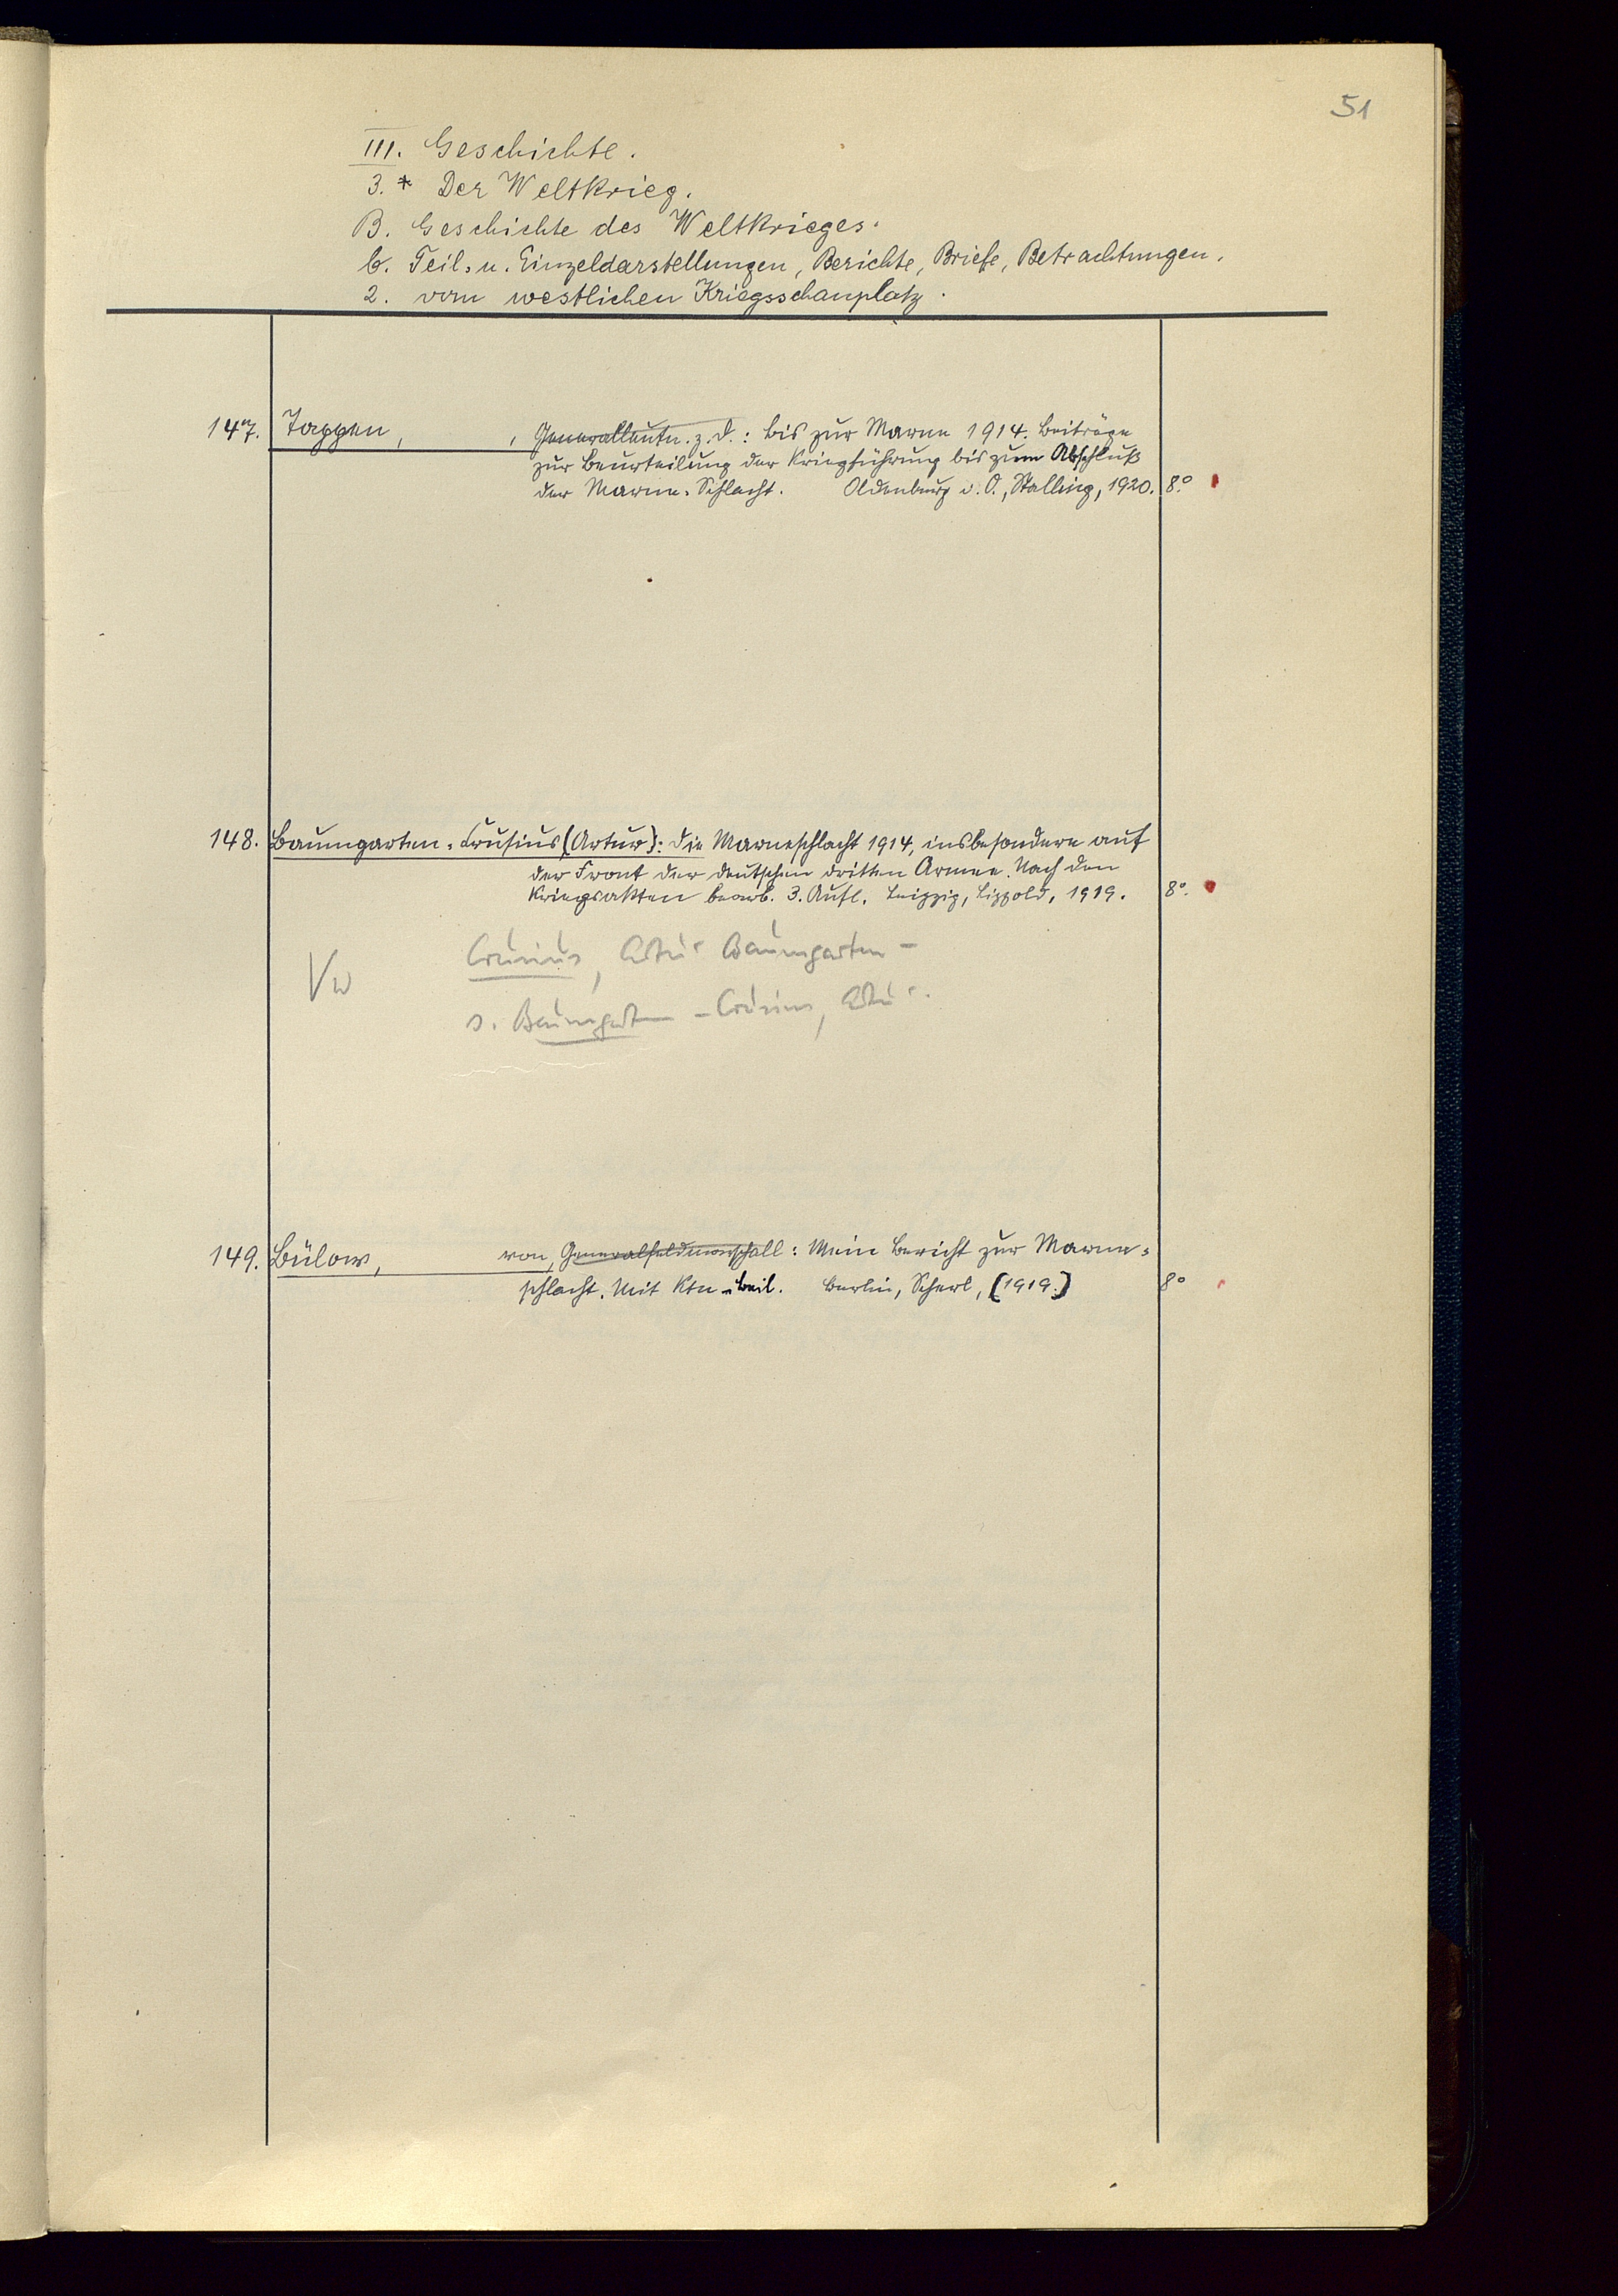 51
III. Geschichte.
3.* Der Weltkrieg.
B. Geschichte des Weltkrieges.
b. Teil- u. Einzeldarstellungen, Berichte, Briefe, Betrachtungen.
2. vom westlichen Kriegsschauplatz.
147. Tappen, , Generalleutn. z. D.: Bis zur Marne 1914. Beiträge
zur Beurteilung der Kriegführung bis zum Abschluß
der Marne-Schlacht. Oldenburg i. O., Stalling, 1920. 8°.
148. Baumgarten-Crusius (Artur): Die Marneschlacht 1914, insbesondere auf
der Front der deutschen dritten Armee. Nach den
Kriegsakten bearb. 3. Aufl. Leipzig, Lippold, 1919. 8°.
Crusius, Artur Baumgarten-
Vw
s. Baumgarten-Crusius, Artur.
149. Bülow, von, Generalfeldmarschall: Mein Bericht zur Marne-
schlacht. Mit Ktn-Beil. Berlin, Scherl, [1919.] 8°